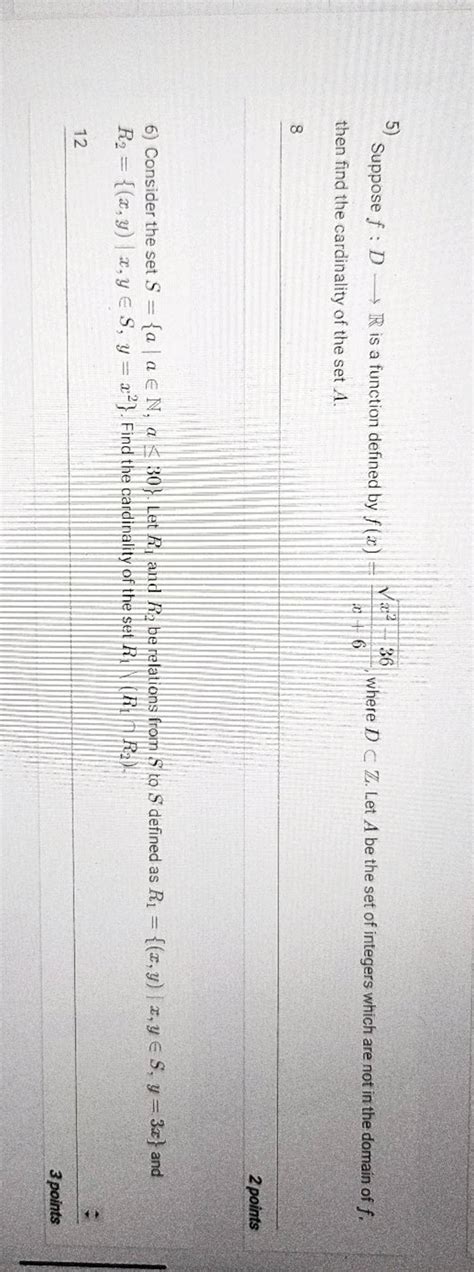 5)
Suppose f : D ⟶ ℝ is a function defined by f(x) = √(x² − 36) / (x + 6), where D ⊂ ℤ. Let A be the set of integers which are not in the domain of f,
then find the cardinality of the set A.
8
2 points
6) Consider the set S = {a | a ∈ ℕ, a ≤ 30}. Let R₁ and R₂ be relations from S to S defined as R₁ = {(x, y) | x, y ∈ S, y = 3x} and
R₂ = {(x, y) | x, y ∈ S, y = x²}. Find the cardinality of the set R₁ \ (R₁ ∩ R₂).
12
3 points